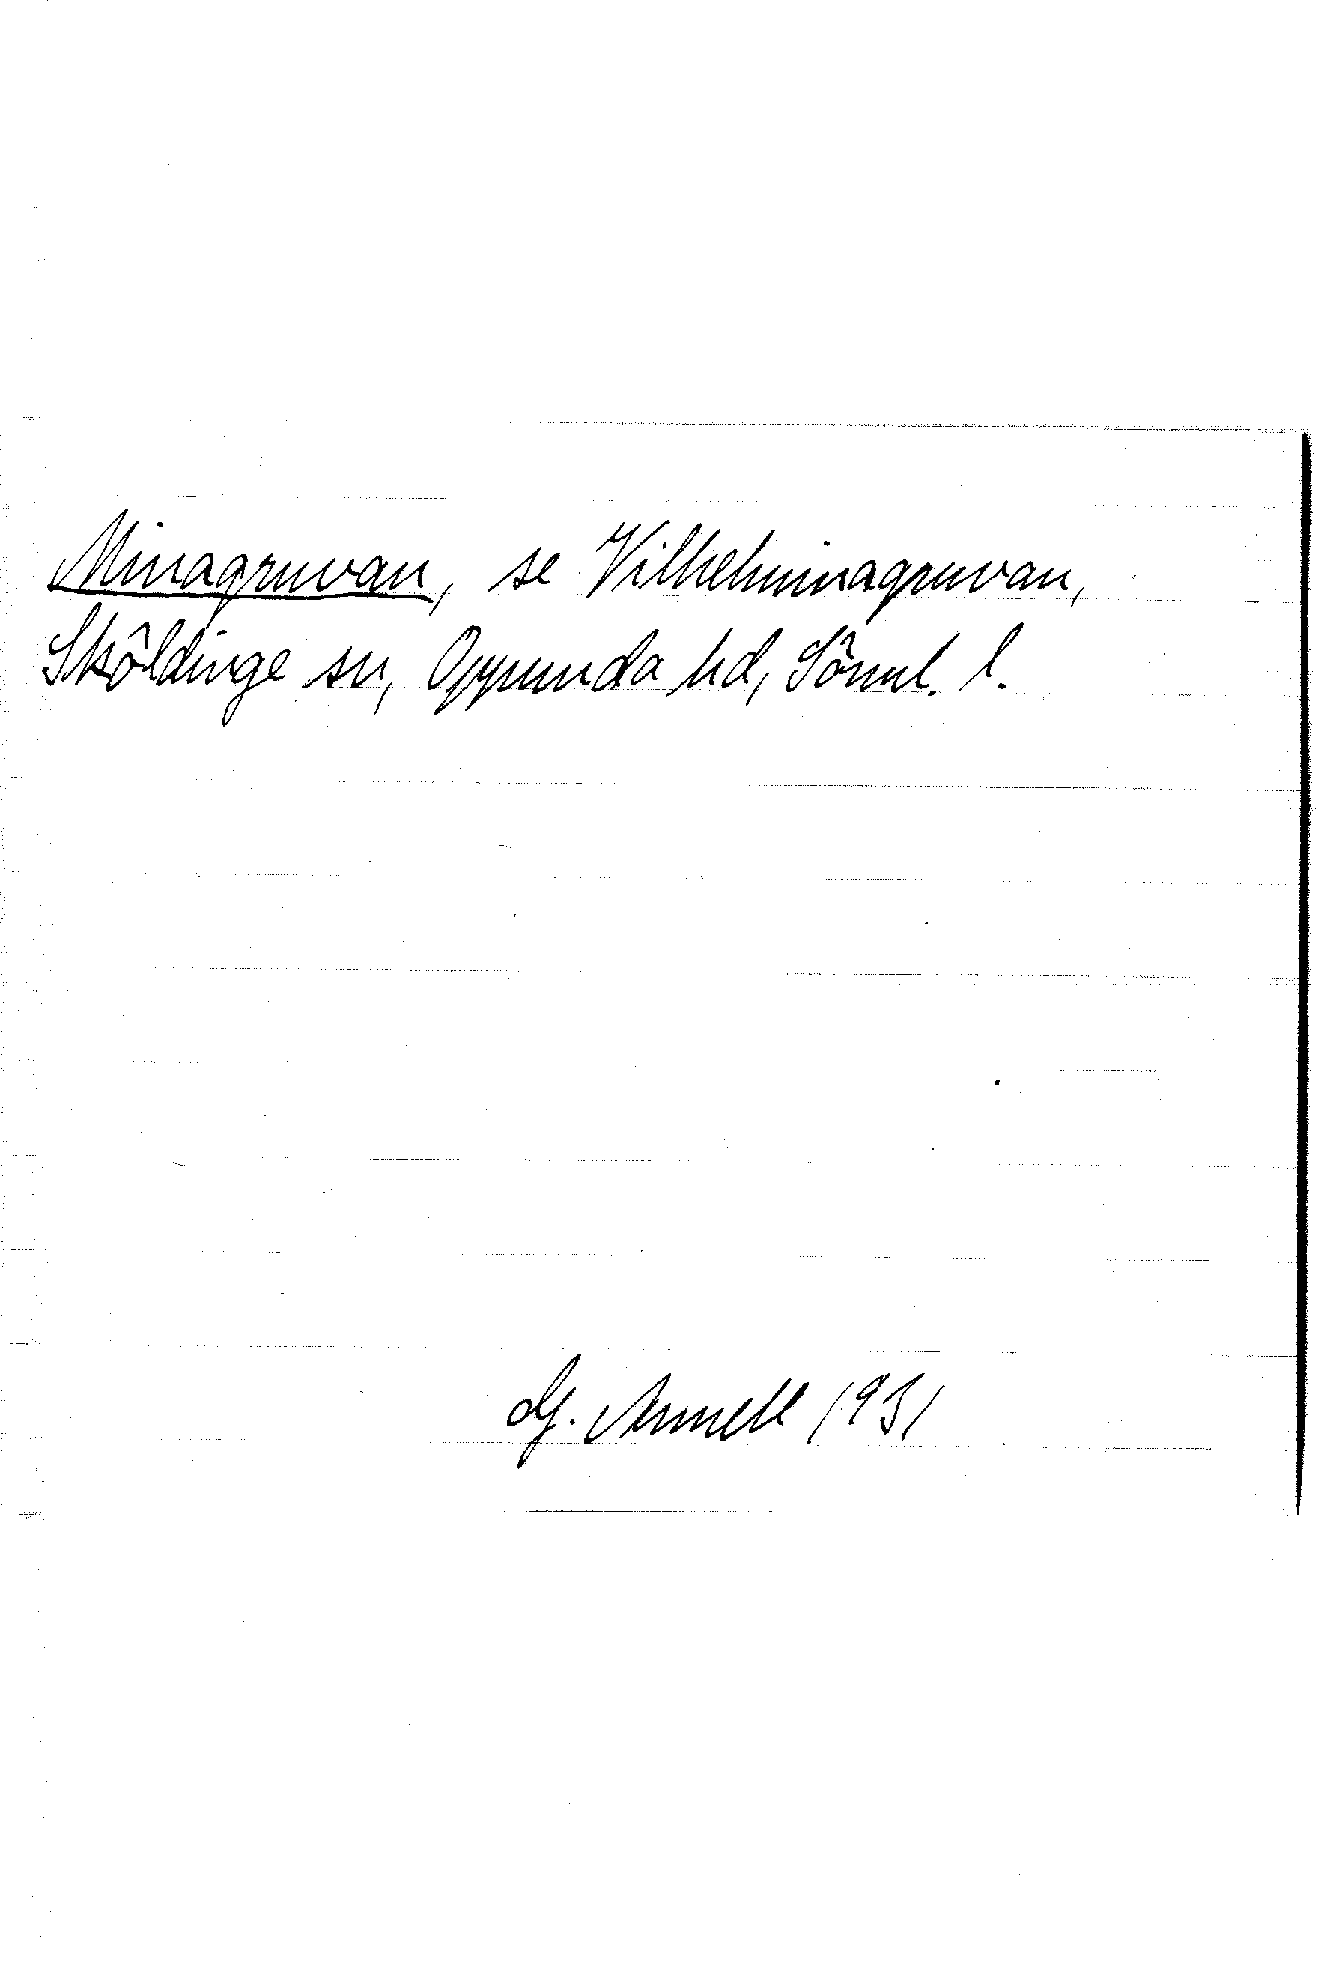 Minagruvan, se Vilhelminagruvan,
Sköldinge sn, Oppunda hd, Söml. l.
G. Annell 1931